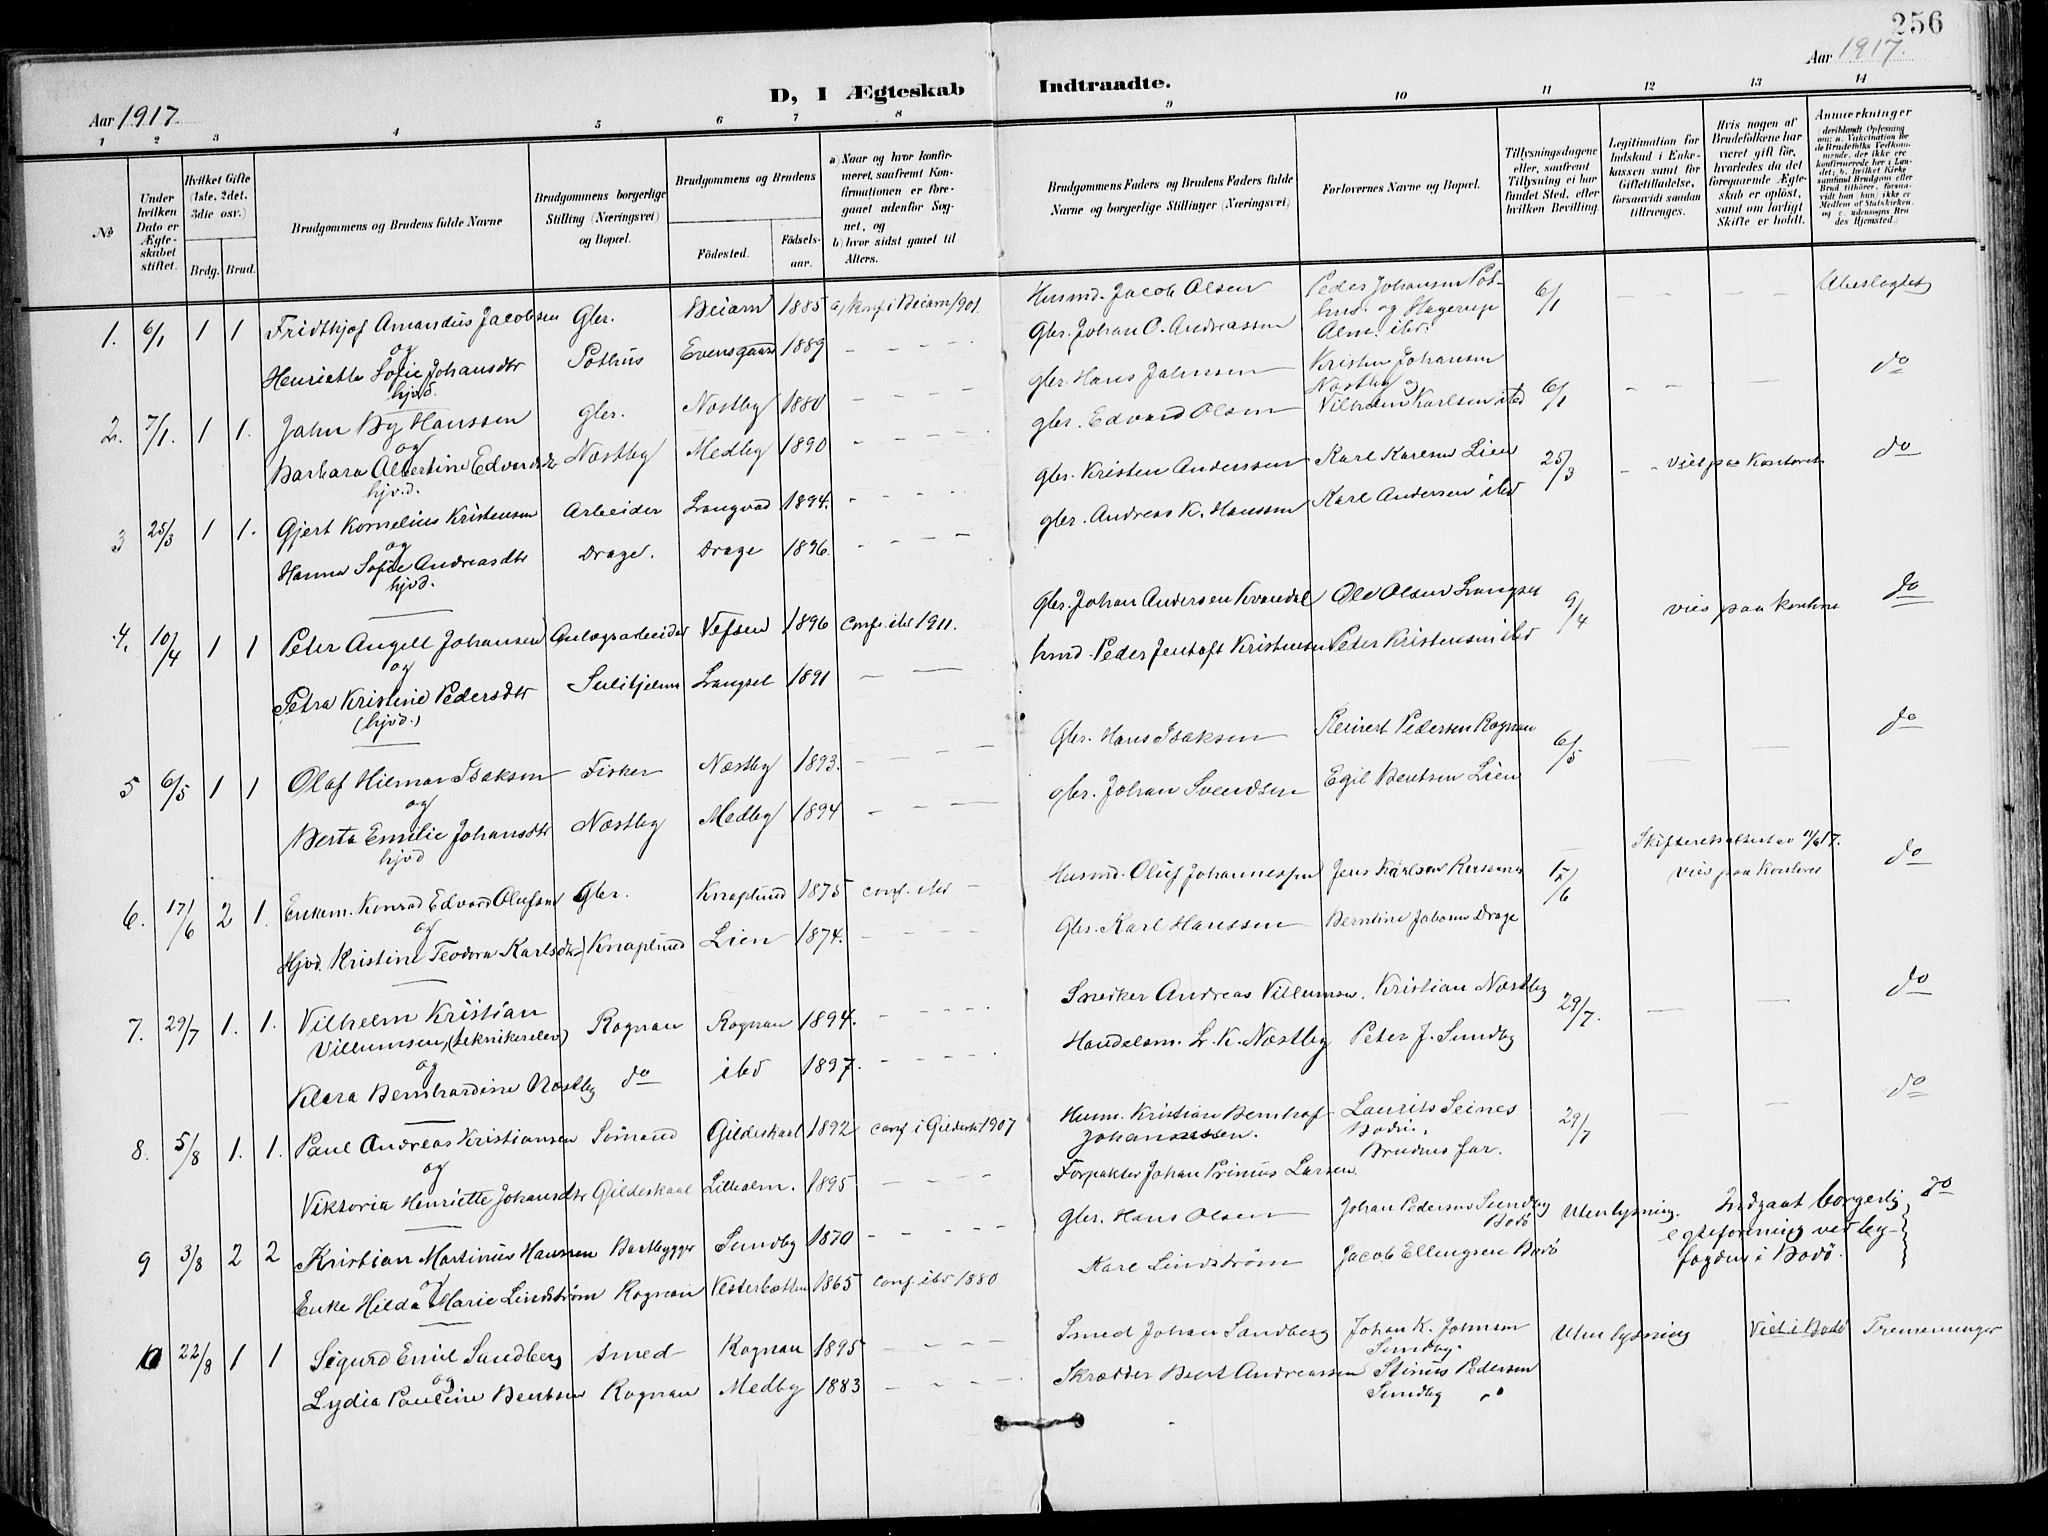 256
Aar 1917. D, I Ægteskab Indtraadte. Aar 1917.
1 2 3 4 5 6 7 8 9 10 11 12 13 14
No
Under hvilken Dato er Ægteskabet stiftet.
Hvilket Gifte (1ste, 2det, 3die osv.)
Brdg. Brud.
Brudgommens og Brudens fulde Navne
Brudgommens borgerlige Stilling (Næringsvei) og Bopæl.
Brudgommens og Brudens
Födested. Födselsaar.
a) Naar og hvor konfirmeret, saafremt Konfirmationen er foregaaet udenfor Sognet, og
b) hvor sidst gaaet til Alters.
Brudgommens Faders og Brudens Faders fulde Navne og borgerlige Stillinger (Næringsvei)
Forlovernes Navne og Bopæl.
Tillysningsdagene eller, saafremt Tillysning ei har fundet Sted, efter hvilken Bevilling.
Legitimation for Indskud i Enkekassen samt for Giftetilladelse, forsaavidt saadan tiltrænges.
Hvis nogen af Brudefolkene har været gift för, hvorledes da det foregaaende Ægteskab er oplöst, samt om lovligt Skifte er holdt.
Anmærkninger
deriblandt Oplysning om: a. Vakcination for de Brudefolks Vedkommende, der ikke ere konfirmerede her i Landet; b. hvilket Kirkesamfund Brudgom eller Brud tilhörer, forsaavidt han (hun) ikke er Medlem af Statskirken, og c. udensogns Brudes Hjemsted.)
1. 6/1 1 1 Fridthjof Amandus Jacobsen Gbr. Beiarn 1885 a) Konf. i Beiarn 1901. Husmd. Jacob Olsen Peder Johansen Pothus og Hagerup Alm. ibd. 6/1 – – – Ubeslægtet
og
Henriette Sofie Johansdtr Pothus Evensgaard 1889 – – – – Gbr. Johan O. Andreassen
hjvd.
2. 7/1. 1 1. Jahn By Hanssen gbr. Næstby 1880 – – – – gbr. Hans Jahnsen Kristen Johansen Næstby og 6/1 – – – do
og
Barbara Albertine Edvardsdtr Næstby Medby 1890 – – – – gbr. Edvard Olsen Vilhelm Karlsen ibd
hjv.d.
3 25/3 1 1. Gjert Kornelius Kristensen Arbeider Langvad 1894. – – – – gbr. Kristen Anderssen Karl Karlsen Lien 25/3 – – Viet paa Kontoret do
og
Hanna Sofie Andreasdtr Drage. Drage 1896. – – – – gbr. Andreas K. Hanssen Karl Andersen ibd
hjvd.
4. 10/4 1 1 Peter Angell Johansen Anlægsarbeider Vefsen 1896 conf. ibd 1911. Gbr. Johan Andersen Kvandal Ole Olsen Langset 9/4 vies paa kontoret do
og
Petra Kristine Pedersdtr Sulitjelma Langset 1891 – – hmd. Peder Jentoft Kristensen Peder Kristensen ibd
(hjvd.)
5 6/5 1 1 Olaf Hilmar Isaksen Fisker Næstby 1893. – – – – Gbr. Hans Isaksen Reinert Pedersen Rognan 6/5 – – do
og
Berta Emilie Johansdtr Næstby Medby 1894 – – – – gbr. Johan Svendsen Egil Bentsen Lien
hjvd
6. 17/6 2 1. Enkem. Konrad Edvard Olufsen Gbr. Knaplund 1875 conf. ibd – Husmd. Oluf Johannessen Jens Karlsen 15/6 Skifteretsattest av 11/6 17. vies paa Kontoret do
og
Hjvd. Kristine Teodora Karlsdtr Knaplund Lien 1874. – – – – Gbr. Karl Hanssen Berntine Jakobsen Drage
7. 29/7 1. 1. Vilhelm Kristian Villumsen, (teknikerelev) Rognan Rognan 1894. – – – – Snedker Andreas Villumsen. Kristian Næstby 29/7. – – do
og
Klara Bernhardine Næstby do ibd 1897. – – – – Handelsm. L. K. Næstby Peter J. Sundby
8. 5/8 1. 1. Paul Andreas Kristiansen Sømand Gildeskaal 1892 conf. i Gildesk. 1907 Husm. Kristian Bernhof Johannessen. Laurits Seines Bodin. 29/7 – – do
og
Viktoria Henriette Johansdtr Gildeskaal Lilholm. 1895 – – – – Forpakter Johan Primus Larsen Brudens far.
9 3/8 2 2 Kristian Martinus Hansen Baatbygger Sundby 1870 – – – – Gbr. Hans Olsen Johan Pedersen Sundby Bodø Uten lysning. Indgaat borgerlig egteforening ved byfogden i Bodø. do
og
Enke Hilda Marie Lindstrøm Rognan Vesterbotten 1865 conf. ibd 1880 Karl Lindstrøm Jacob Ellingsen Bodø
10 22/8 1 1 Sigurd Emil Sandberg smed Rognan 1895 – – – – Smed Johan Sandberg Johan K. Johnsen Sundby. Uten lysning Viet i Bodø Tremenninger
og
Lydia Pauline Bentsen Rognan Medby 1883 – – – – Skrædder Bent Andreassen Stinus Pedersen Sundby "